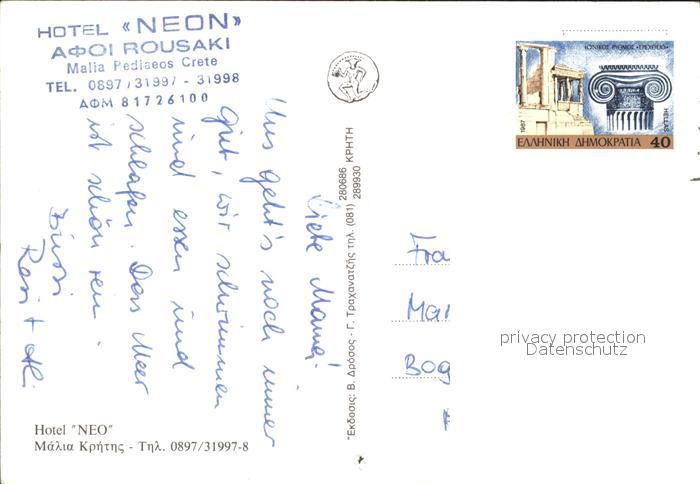 HOTEL «NEON»
ΑΦΟΙ ROUSAKI
Malia Pediaeos Crete
TEL. 0897/31997 - 31998
ΑΦΜ 81726100
Liebe Mama!
Uns geht's noch immer
gut, wir schwimmen
und essen und
schlafen. Das Meer
ist schön rein.
Bussi
Resi + Ali
Hotel "NEO"
Μάλια Κρήτης - Τηλ. 0897/31997-8
"Εκδοσις: Β. Δρόσος - Γ. Τραχανατζής τηλ. (081) 280686 289930 ΚΡΗΤΗ
ΙΩΝΙΚΟΣ ΡΥΘΜΟΣ «ΕΡΕΧΘΕΙΟ»
1987
HELLAS
ΕΛΛΗΝΙΚΗ ΔΗΜΟΚΡΑΤΙΑ 40
Fra
Mar
Bog
privacy protection
Datenschutz